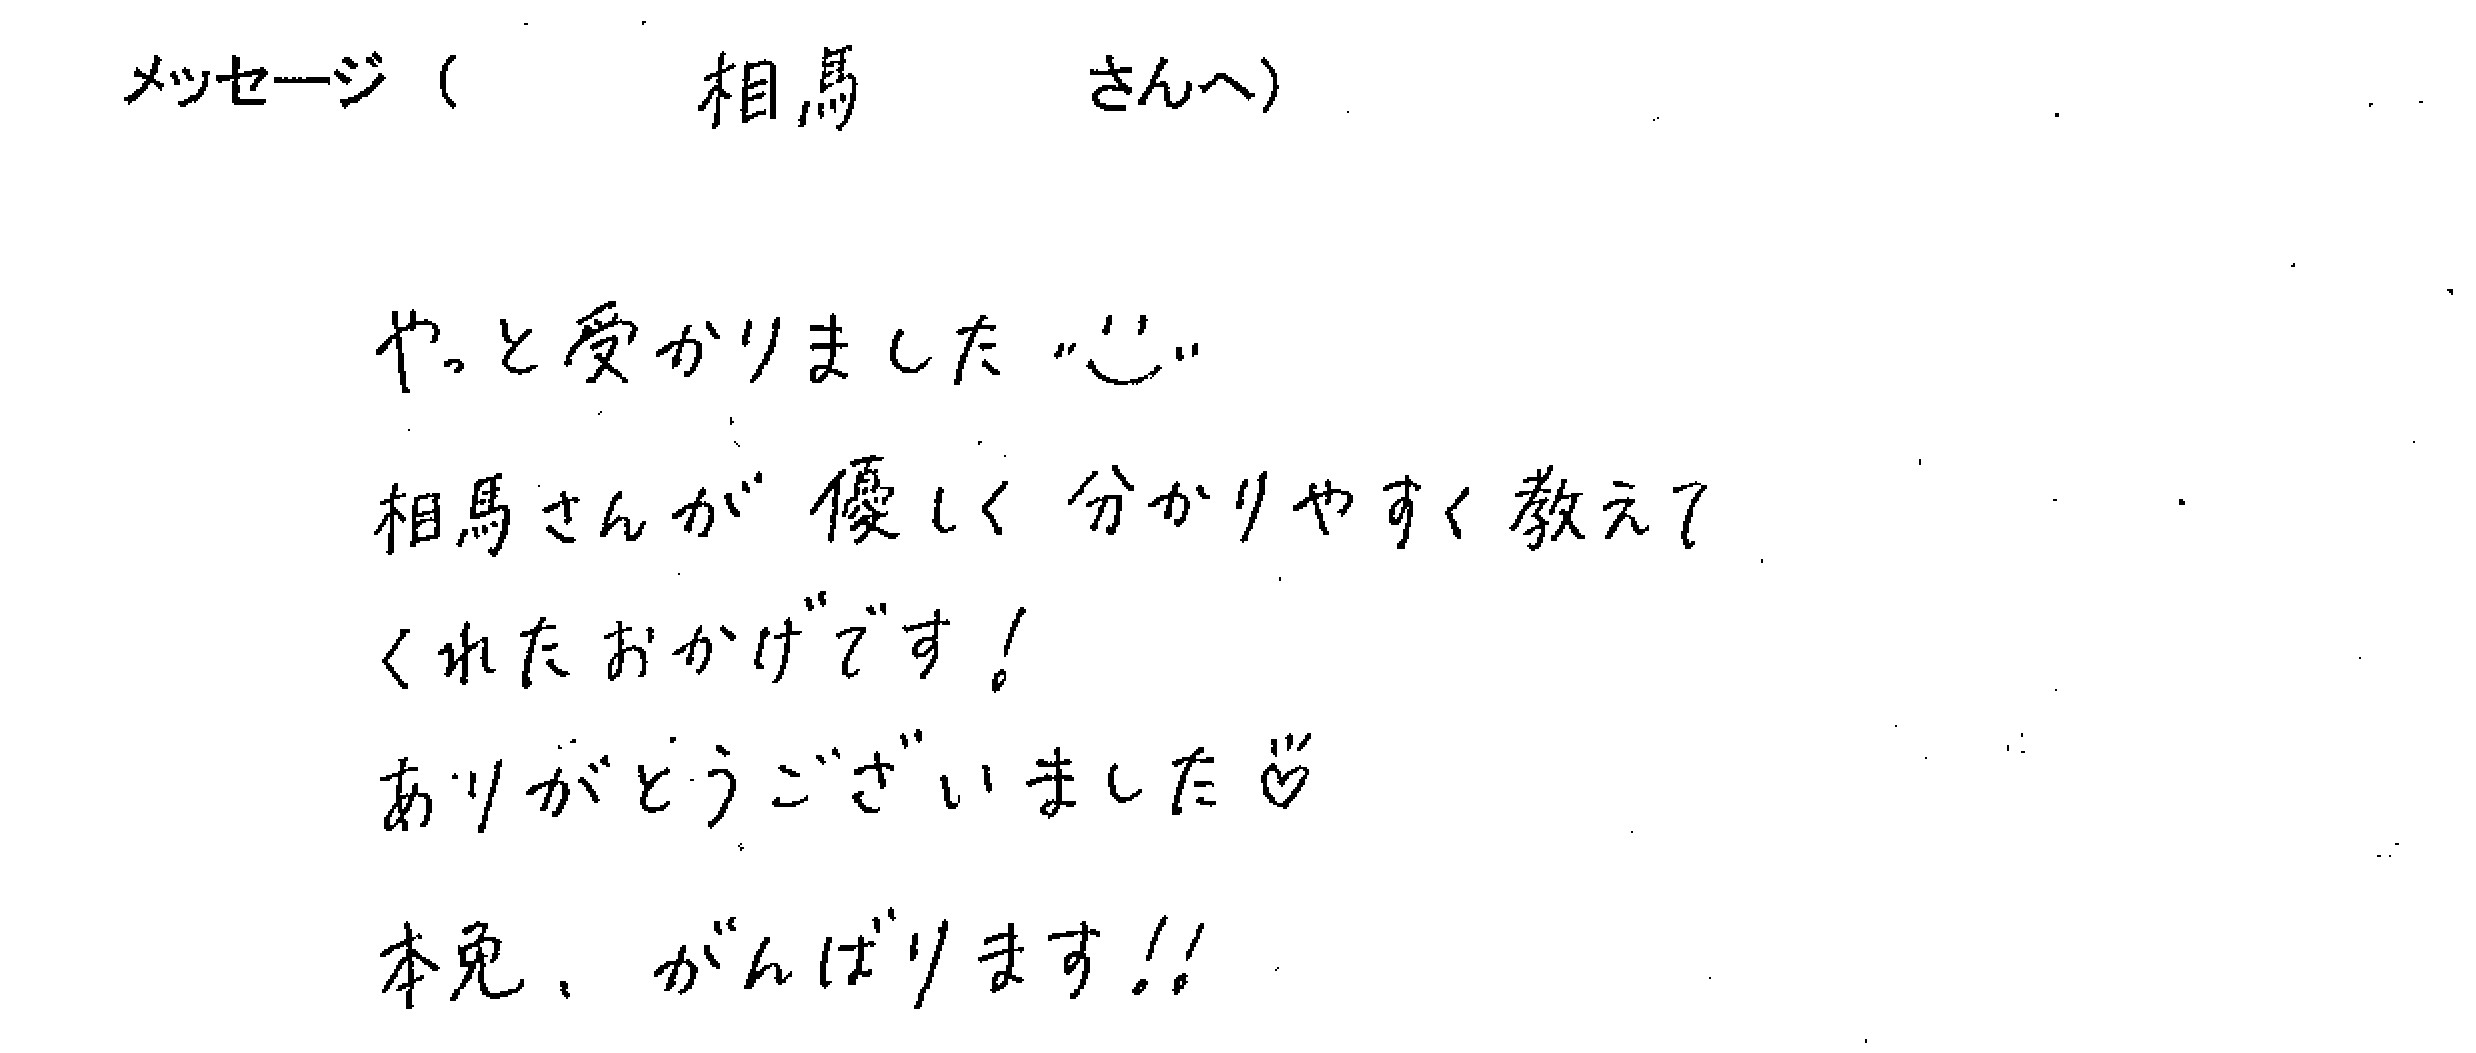 メッセージ（ 相馬 さんへ）
やっと受かりました
相馬さんが 優しく 分かりやすく 教えて
くれたおかげです！
ありがとうございました♡
本免、がんばります！！